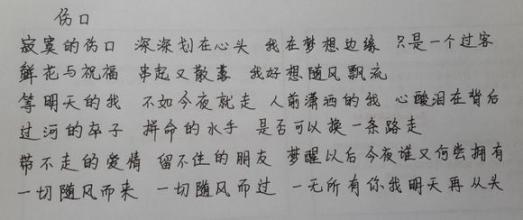 伤口
寂寞的伤口 深深划在心头 我在梦想边缘 只是一个过客
鲜花与祝福 串起又散落 我好想随风飘流
等明天的我 不如今夜就走 人前潇洒的我 心酸泪在背后
过河的卒子 拼命的水手 是否可以换一条路走
带不走的爱情 留不住的朋友 梦醒以后今夜谁又何尝拥有
一切随风而来 一切随风而过 一无所有你我明天再从头